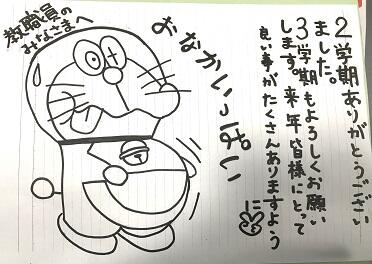 教職員の
みなさまへ
おなかいっぱい
2学期ありがとうござい
ました。
3学期もよろしくお願い
します。来年皆様にとって
良い事がたくさんありますよう
に